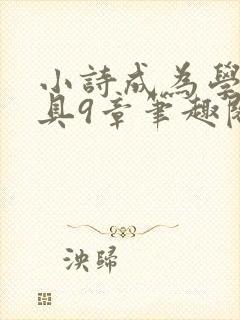 小詩成為學
具9章筆趣閣
泱歸